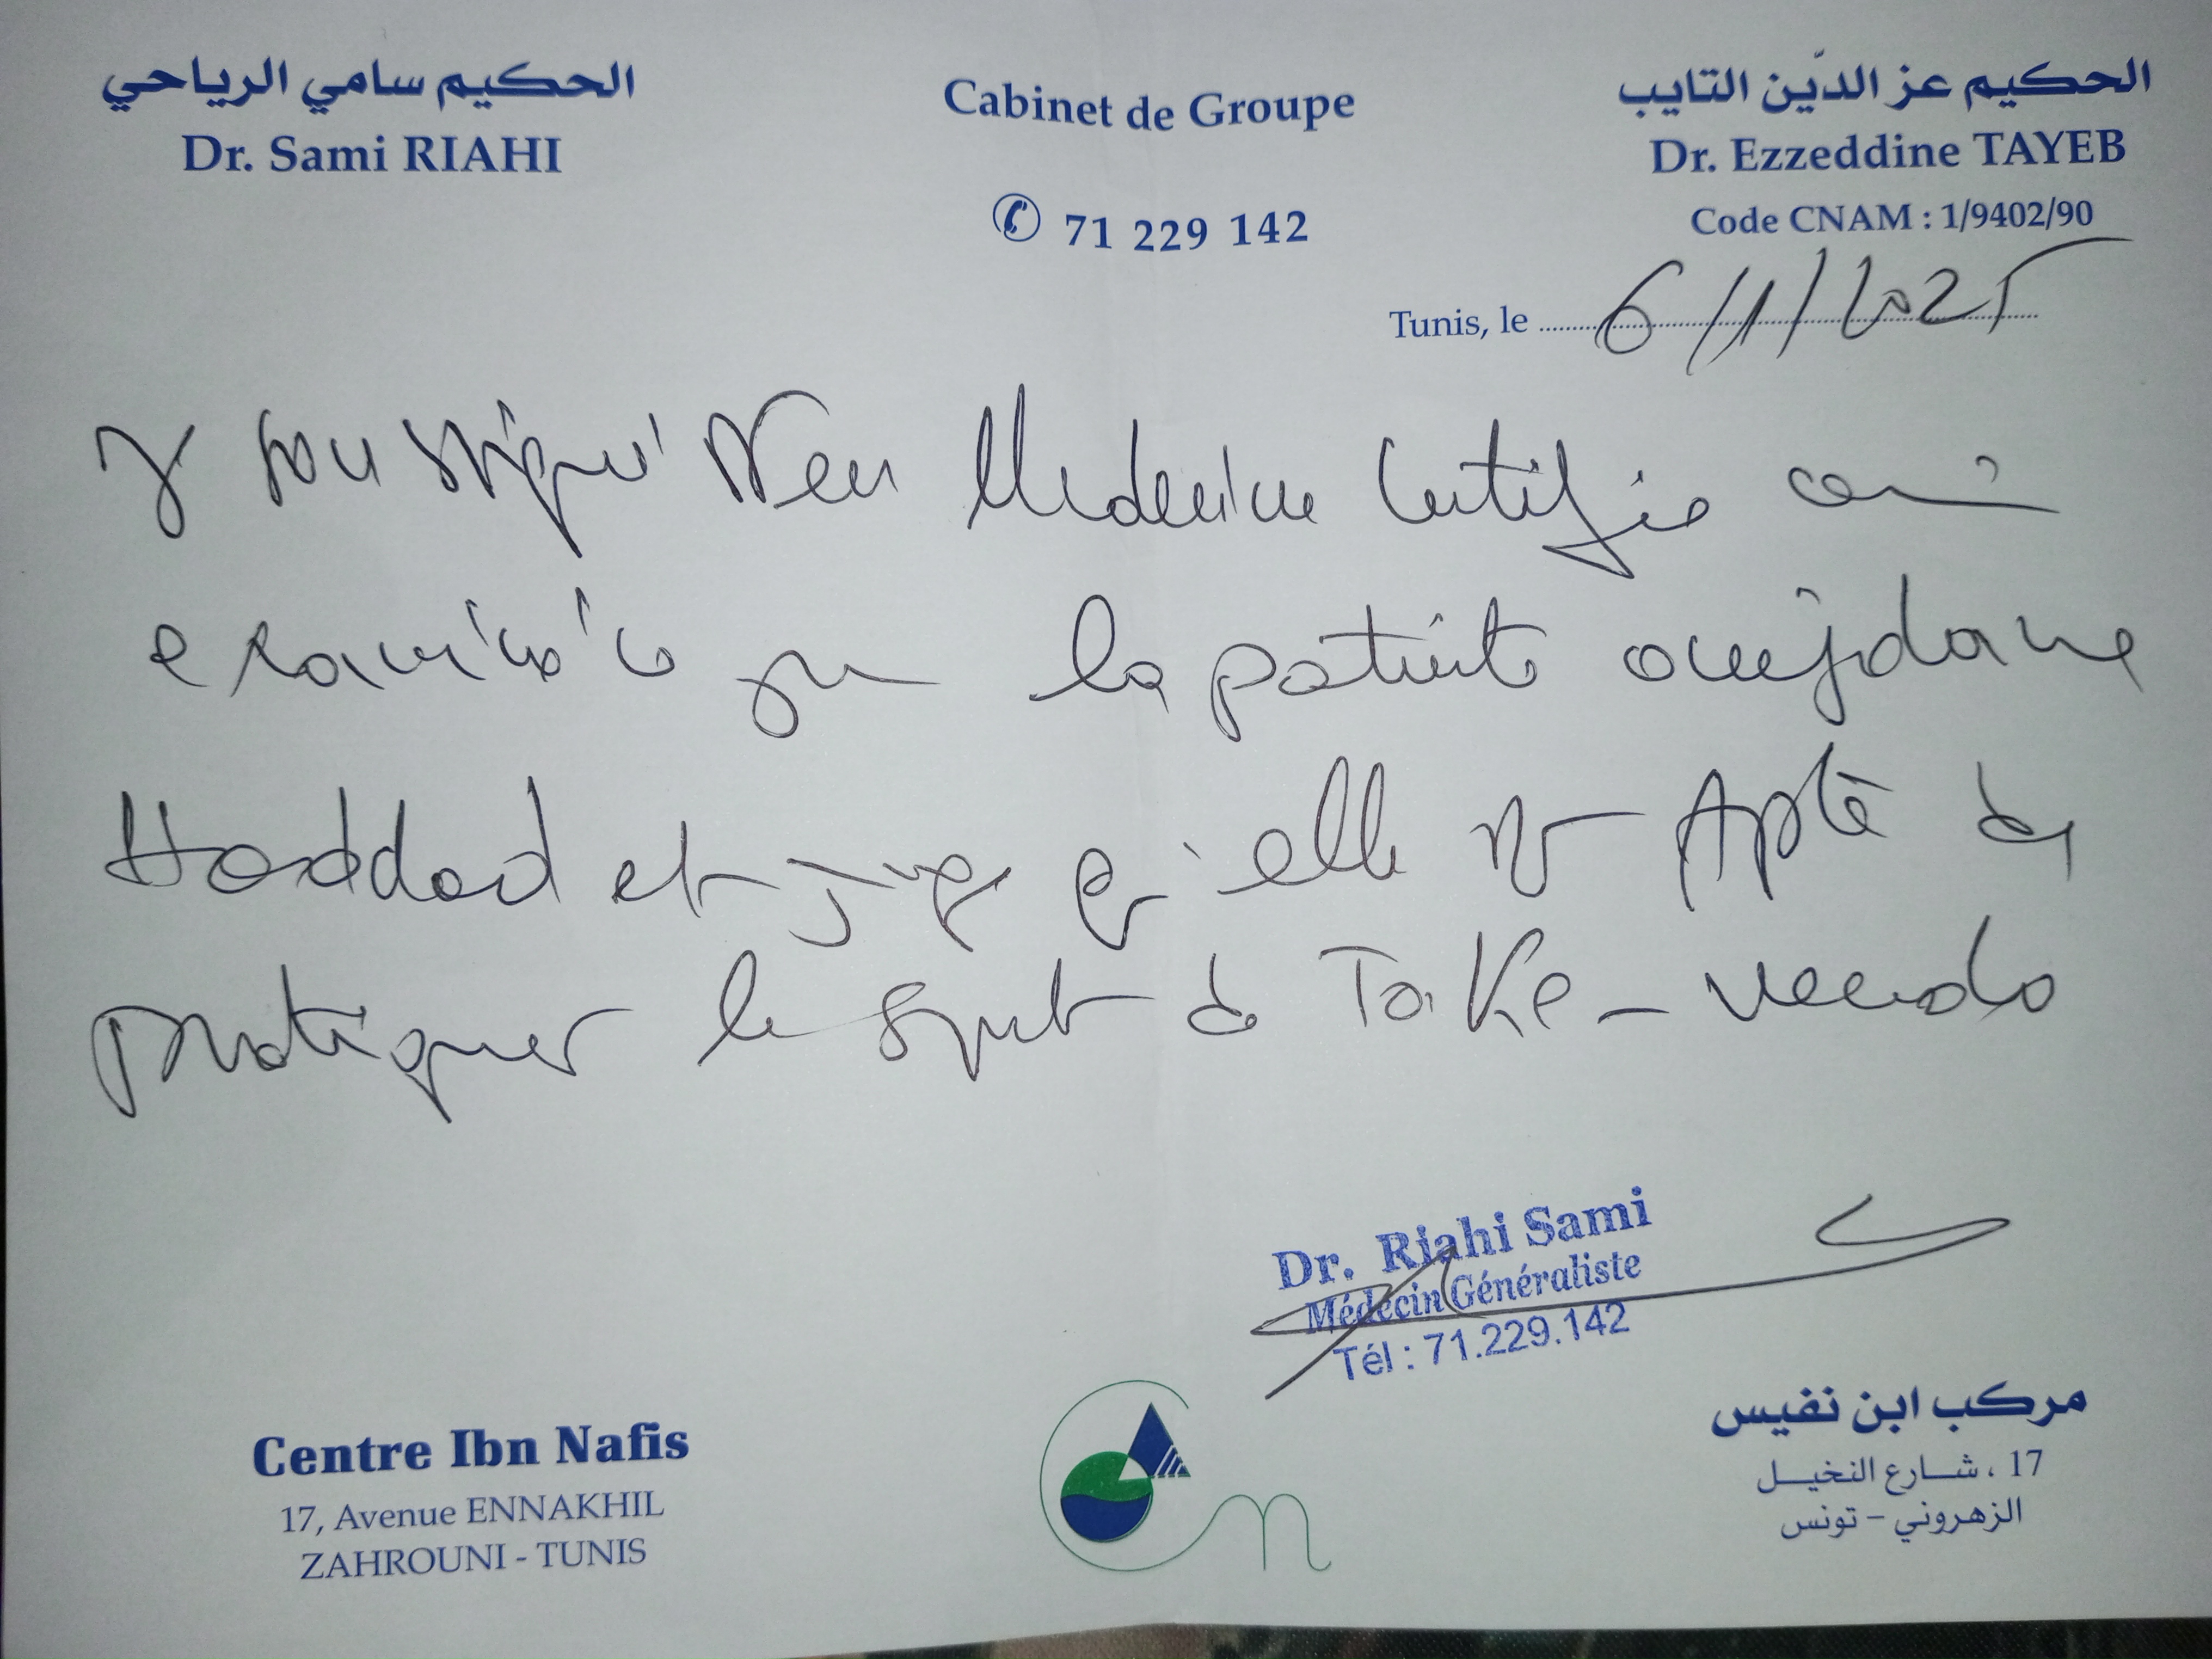 الحكيم سامي الرياحي
Dr. Sami RIAHI
Cabinet de Groupe
71 229 142
الحكيم عز الدّين التايب
Dr. Ezzeddine TAYEB
Code CNAM : 1/9402/90
Tunis, le 6/1/2025
Je soussigné Dr en Medecine Certifie avoir
examiné ce jour la patiente ouijdane
Haddad et juge qu'elle est Apte de
pratiquer le sport de Taike-wendo
Dr. Riahi Sami
Médecin Généraliste
Tél : 71.229.142
Centre Ibn Nafis
17, Avenue ENNAKHIL
ZAHROUNI - TUNIS
مركب ابن نفيس
17 ، شارع النخيل
الزهروني - تونس